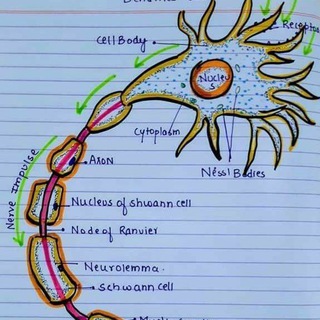 Receptor
Cell Body
Nucleu
s
Cytoplasm
Nissl Bodies
Axon
Nerve Impulse
Nucleus of shwann cell
Node of Ranvier
Neurolemma.
Schwann cell